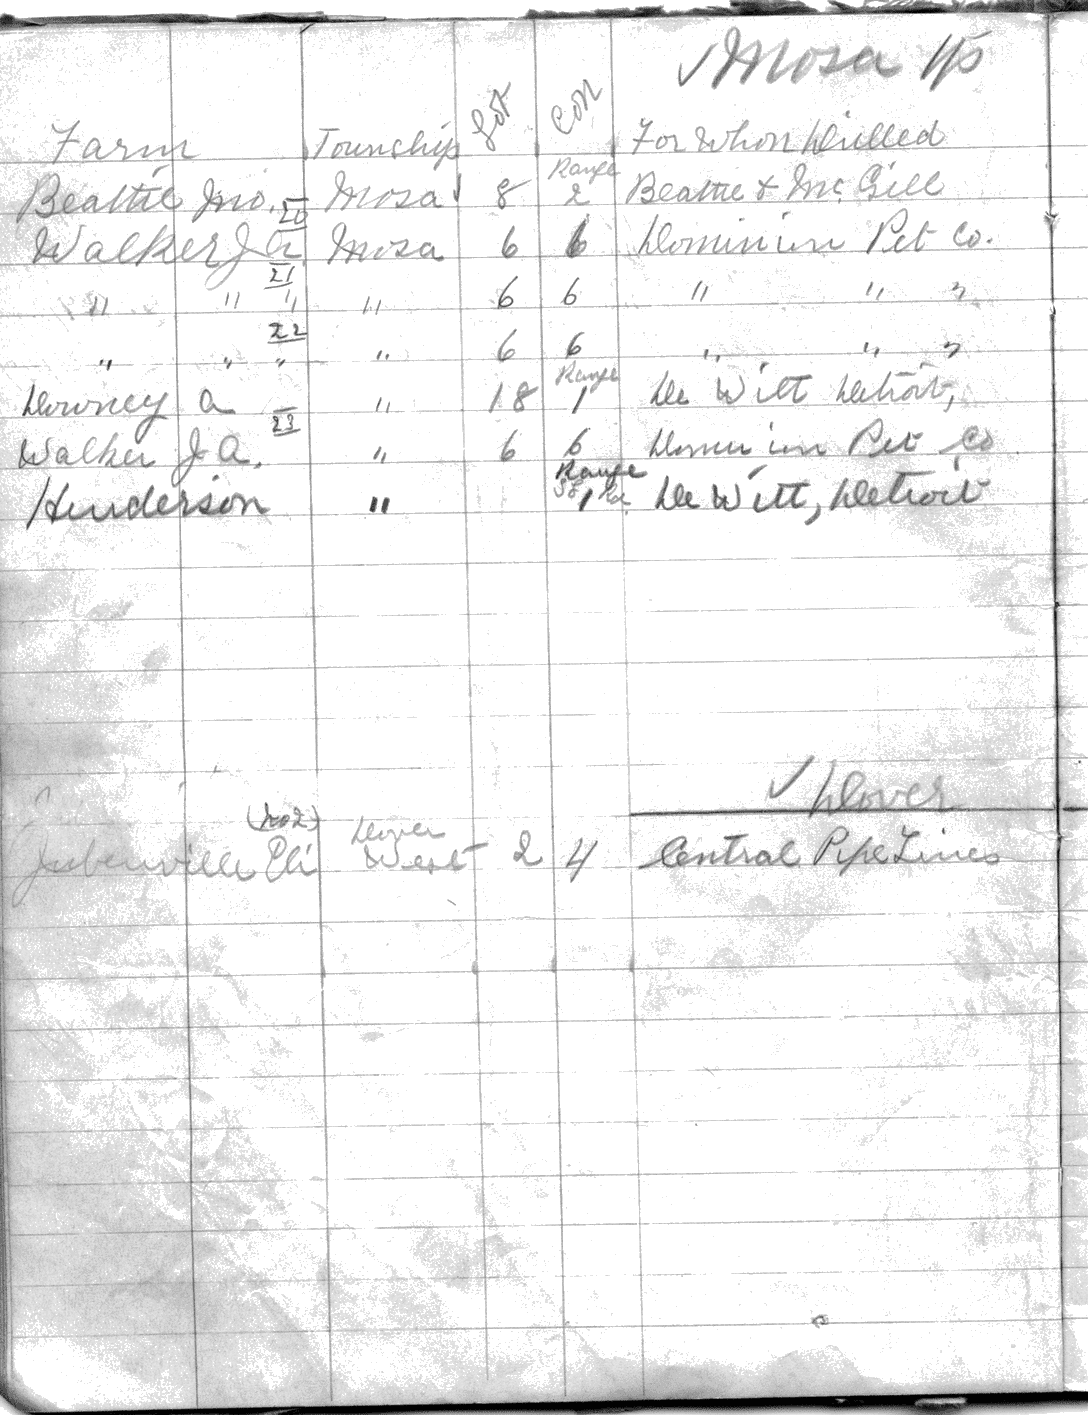 ✓ Mosa Tp
Farm Township Lot Con For Whom Drilled
Range
Beattie Jno. Mosa ✓ 8 2 Beattie & McGill
20
Walker J a Mosa 6 6 Dominion Pet Co.
21
" " " " 6 6 " " "
22
" " " " 6 6 " " "
Range
Downey a " 18 1 De Witt Detroit,
23
Walker J. A. " 6 6 Dominion Pet Co
Range
Henderson " 1 De Witt, Detroit
✓ Dover
(No 2) Dover
Jubenville Eli West 2 4 Central Pipe Lines